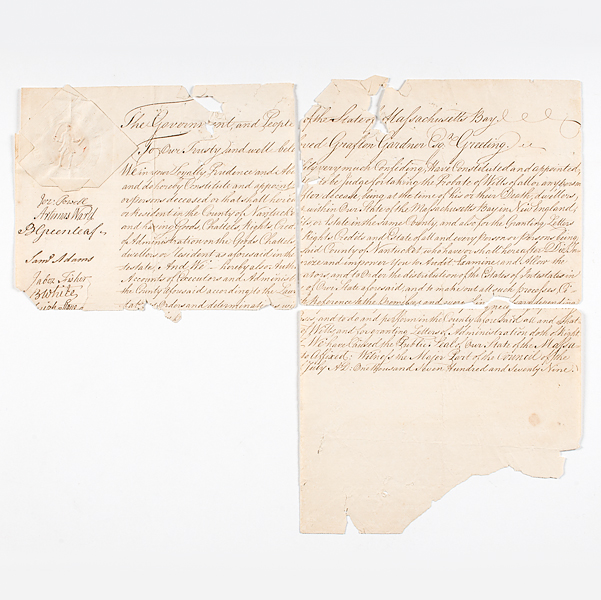 The Government and People of the State of Massachusetts Bay
To Our Trusty and well belo ved Grafton Gardner Esqr. Greeting
We in your Loyalty Prudence and Ab very much Confiding, Have Constituted and appointed,
and do hereby Constitute and appoint to be Judge for taking the Probate of Wills of all or any person
or persons deceased or that shall here after decease, being at the time of his or their Death, dwellers
or Resident in the County of Nantucket within Our State of the Massachusetts Bay in New England,
and having Goods, Chattels, Rights Cred or Estate in the same County, and also for the Granting Letters
of Administration on the Goods, Chattels Rights Credits and Estate of all and every Person or Persons being
dwellers or Resident as aforesaid in the said County of Nantucket who have or shall hereafter Die In
testate; And We hereby also Auth orize and impower You to Audit Examine and Allow the
Accounts of Executors and Administ rators and to Order the distribution of the Estates of Intestates in
the County aforesaid according to the Law of Our State aforesaid and to make out all such Processes
Orders and determinate
and to do and perform in the County aforesaid all and
of Wills, and for granting Letters of Administration doth
We have Caused the Public Seal of Our State of the Massa
to Affixed: Witness the Major Part of the Council of the
July AD: One thousand Seven Hundred and Seventy Nine.
Jer: Powell
Artemas Ward
B Greenleaf
Saml. Adams
Jabez Fisher
B White